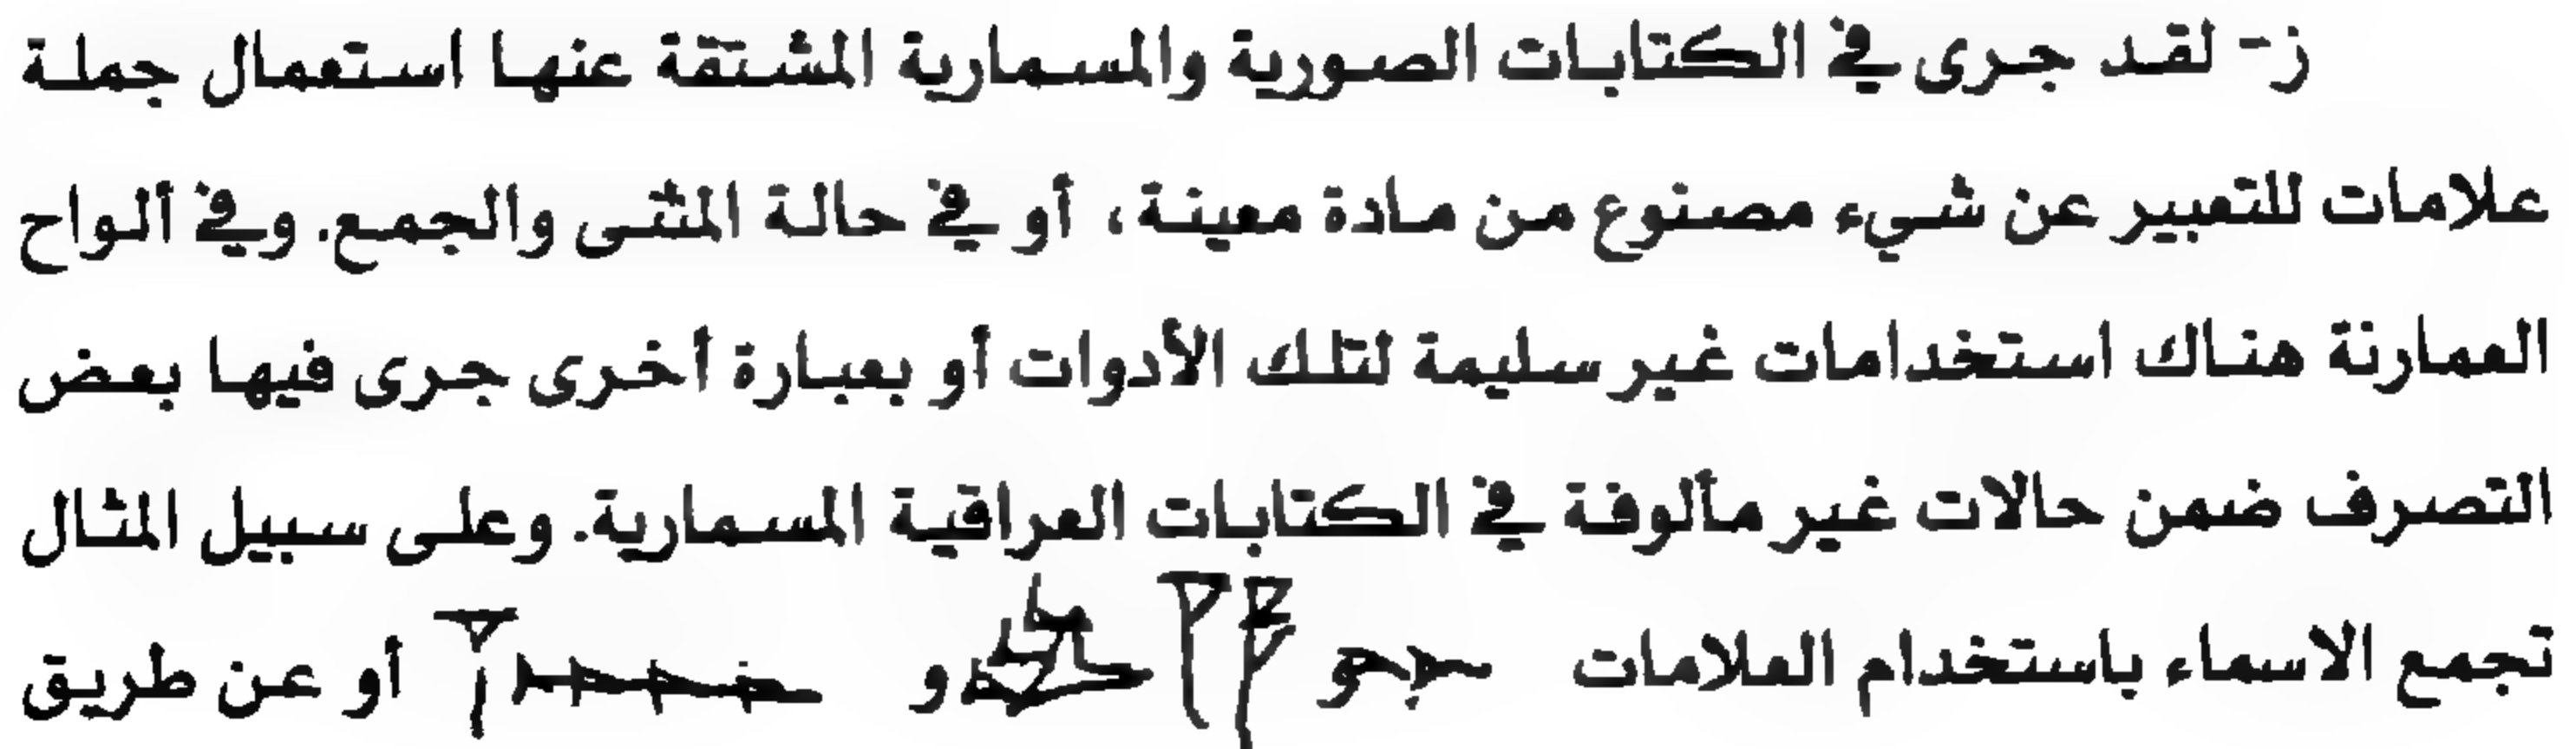 ز- لقد جرى في الكتابات الصورية والمسمارية المشتقة عنها استعمال جملة
علامات للتعبير عن شيء مصنوع من مادة معينة، أو في حالة المثنى والجمع. وفي ألواح
العمارنة هناك استخدامات غير سليمة لتلك الأدوات أو بعبارة أخرى جرى فيها بعض
التصرف ضمن حالات غير مألوفة في الكتابات العراقية المسمارية. وعلى سبيل المثال
تجمع الاسماء باستخدام العلامات و أو عن طريق